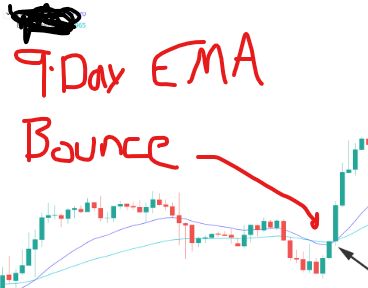 9.Day EMA
Bounce